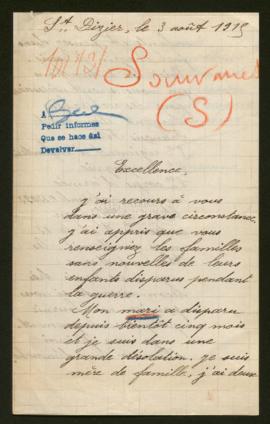 St. Dizier, le 3 août 1915
Souvanet
(S)
A
Pedir informes
Que se hace así
Devolver
Excellence,
j'ai recours à vous
dans une grave circonstance,
j'ai appris que vous
renseignez les familles
sans nouvelles de leurs
enfants disparus pendant
la guerre.
Mon mari a disparu
depuis bientôt cinq mois
et je suis dans une
grande désolation. je suis
mère de famille, j'ai deux